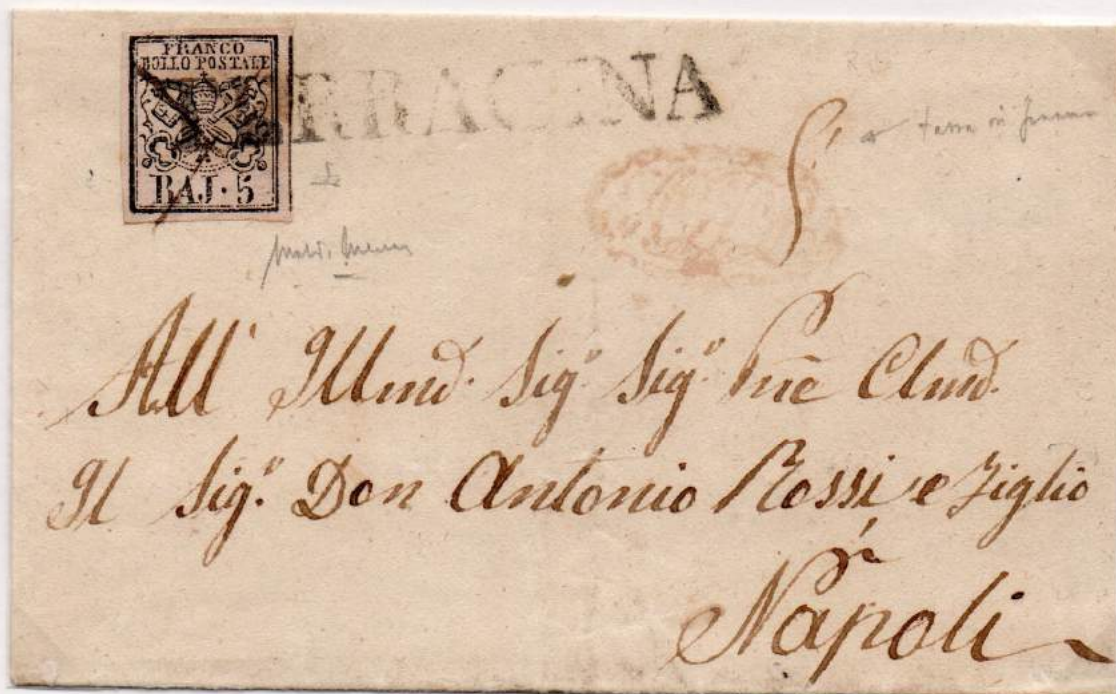 FRANCO
BOLLO POSTALE
BAJ·5
TERRACINA
All' Illmo. Sigr. Sigr. Pne Clmo.
Il Sigr. Don Antonio Rossi e Figlio
Napoli